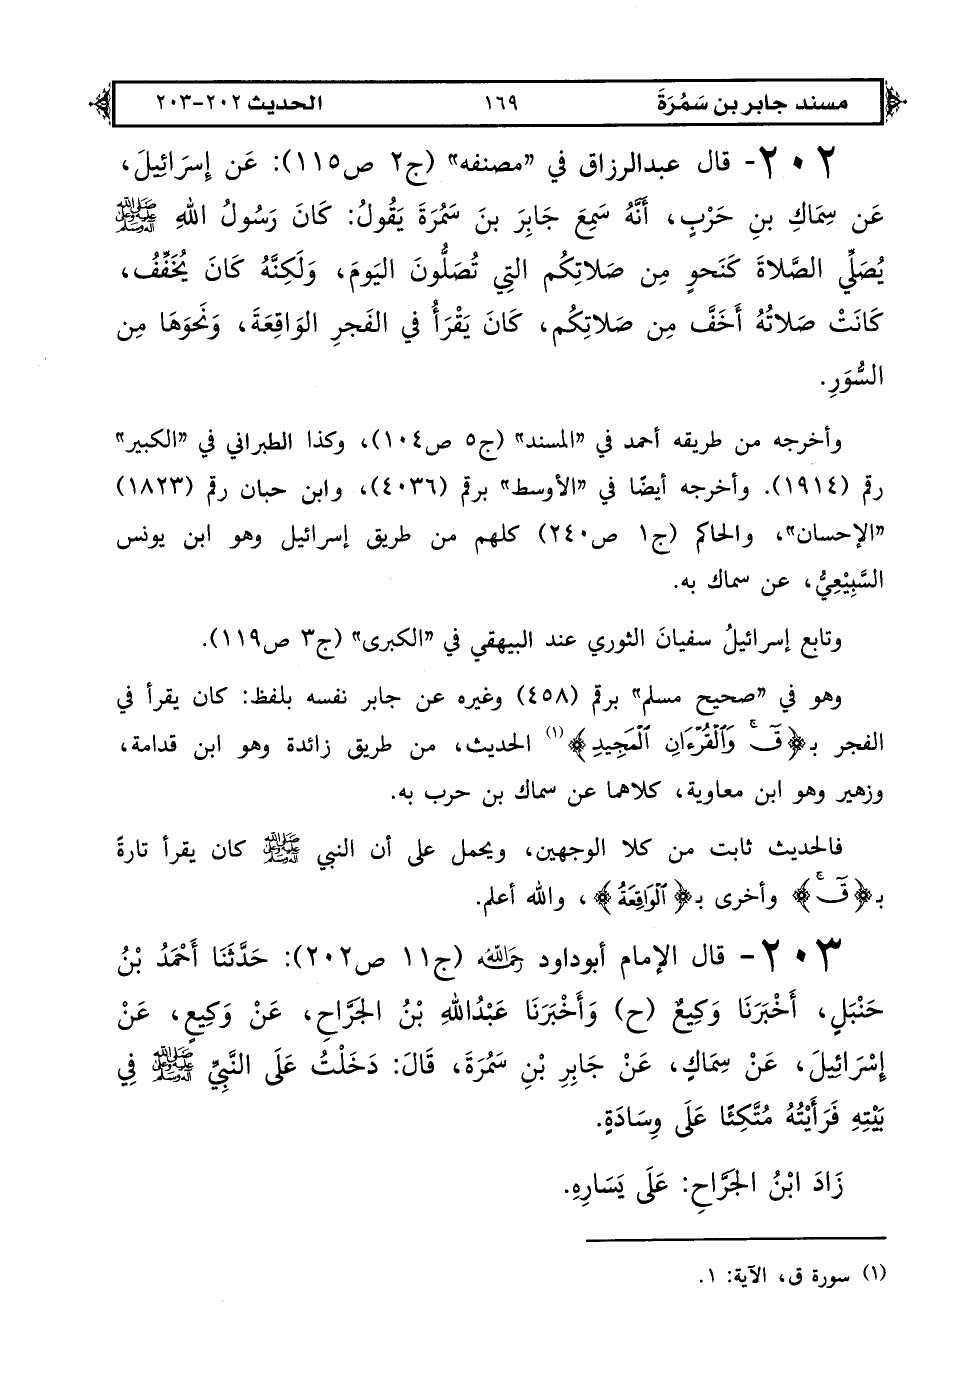 مسند جابر بن سَمُرَةَ ١٦٩ الحديث ٢٠٢-٢٠٣
٢٠٢- قال عبدالرزاق في «مصنفه» (ج٢ ص١١٥): عَن إِسرَائِيلَ،
عَن سِمَاكِ بنِ حَرْبٍ، أَنَّهُ سَمِعَ جَابِرَ بنَ سَمُرَةَ يَقُولُ: كَانَ رَسُولُ اللهِ ﷺ
يُصَلِّي الصَّلاةَ كَنَحوٍ مِن صَلاتِكُم التِي تُصَلُّونَ اليَومَ، وَلَكِنَّهُ كَانَ يُخَفِّفُ،
كَانَتْ صَلاتُهُ أَخَفَّ مِن صَلاتِكُم، كَانَ يَقْرَأُ فِي الفَجرِ الوَاقِعَةَ، وَنَحوَهَا مِن
السُّوَرِ.
وأخرجه من طريقه أحمد في «المسند» (ج٥ ص١٠٤)، وكذا الطبراني في «الكبير»
رقم (١٩١٤). وأخرجه أيضًا في «الأوسط» برقم (٤٠٣٦)، وابن حبان رقم (١٨٢٣)
«الإحسان»، والحاكم (ج١ ص٢٤٠) كلهم من طريق إسرائيل وهو ابن يونس
السَّبِيْعِيُّ، عن سماك به.
وتابع إسرائيلُ سفيانَ الثوري عند البيهقي في «الكبرى» (ج٣ ص١١٩).
وهو في «صحيح مسلم» برقم (٤٥٨) وغيره عن جابر نفسه بلفظ: كان يقرأ في
الفجر بـ﴿قٓۚ وَٱلْقُرْءَانِ ٱلْمَجِيدِ﴾(١) الحديث، من طريق زائدة وهو ابن قدامة،
وزهير وهو ابن معاوية، كلاهما عن سماك بن حرب به.
فالحديث ثابت من كلا الوجهين، ويحمل على أن النبي ﷺ كان يقرأ تارةً
بـ﴿قٓۚ﴾ وأخرى بـ﴿ٱلْوَاقِعَةُ﴾، والله أعلم.
٢٠٣- قال الإمام أبوداود رَحِمَهُ اللهُ (ج١١ ص٢٠٢): حَدَّثَنَا أَحْمَدُ بْنُ
حَنْبَلٍ، أَخْبَرَنَا وَكِيعٌ (ح) وَأَخْبَرَنَا عَبْدُاللهِ بْنُ الجَرَّاحِ، عَنْ وَكِيعٍ، عَنْ
إِسْرَائِيلَ، عَنْ سِمَاكٍ، عَنْ جَابِرِ بْنِ سَمُرَةَ، قَالَ: دَخَلْتُ عَلَى النَّبِيِّ ﷺ فِي
بَيْتِهِ فَرَأَيْتُهُ مُتَّكِئًا عَلَى وِسَادَةٍ.
زَادَ ابْنُ الجَرَّاحِ: عَلَى يَسَارِهِ.
(١) سورة ق، الآية: ١.